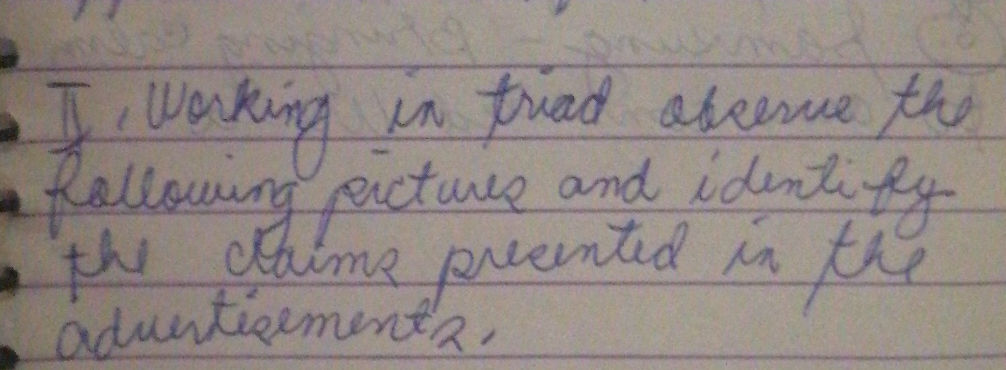 II, Working in triad observe the
following pictures and identify
the claims presented in the
advertisements.